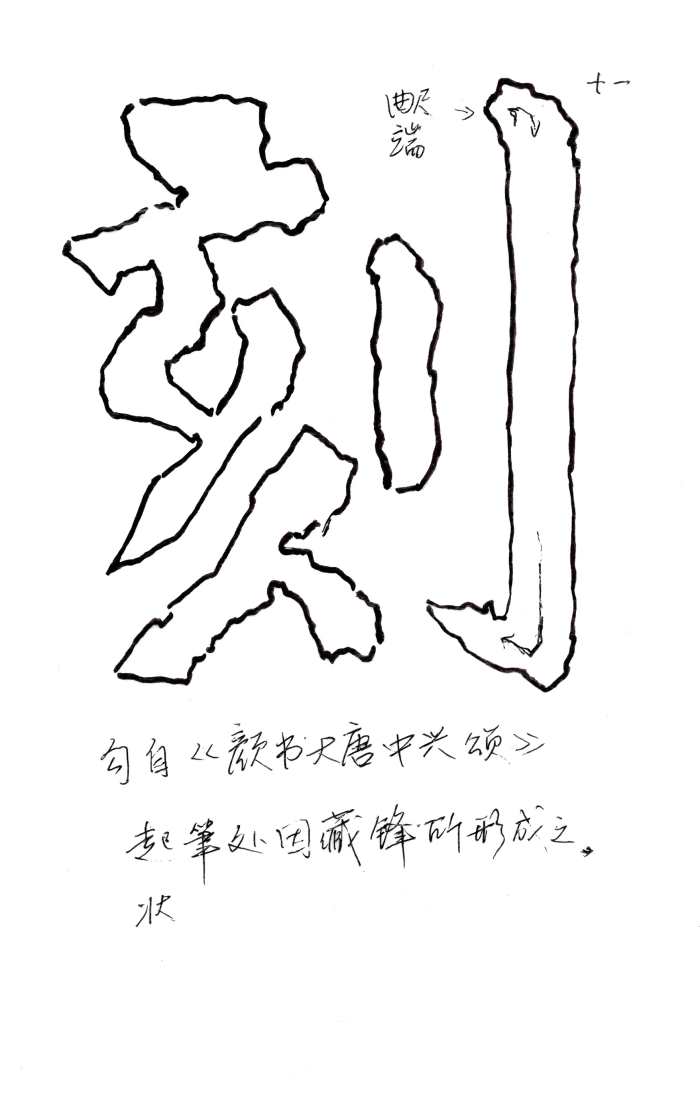 十一
曲尺
端
刻
勾自《颜书大唐中兴颂》
起筆处因藏锋所形成之
状